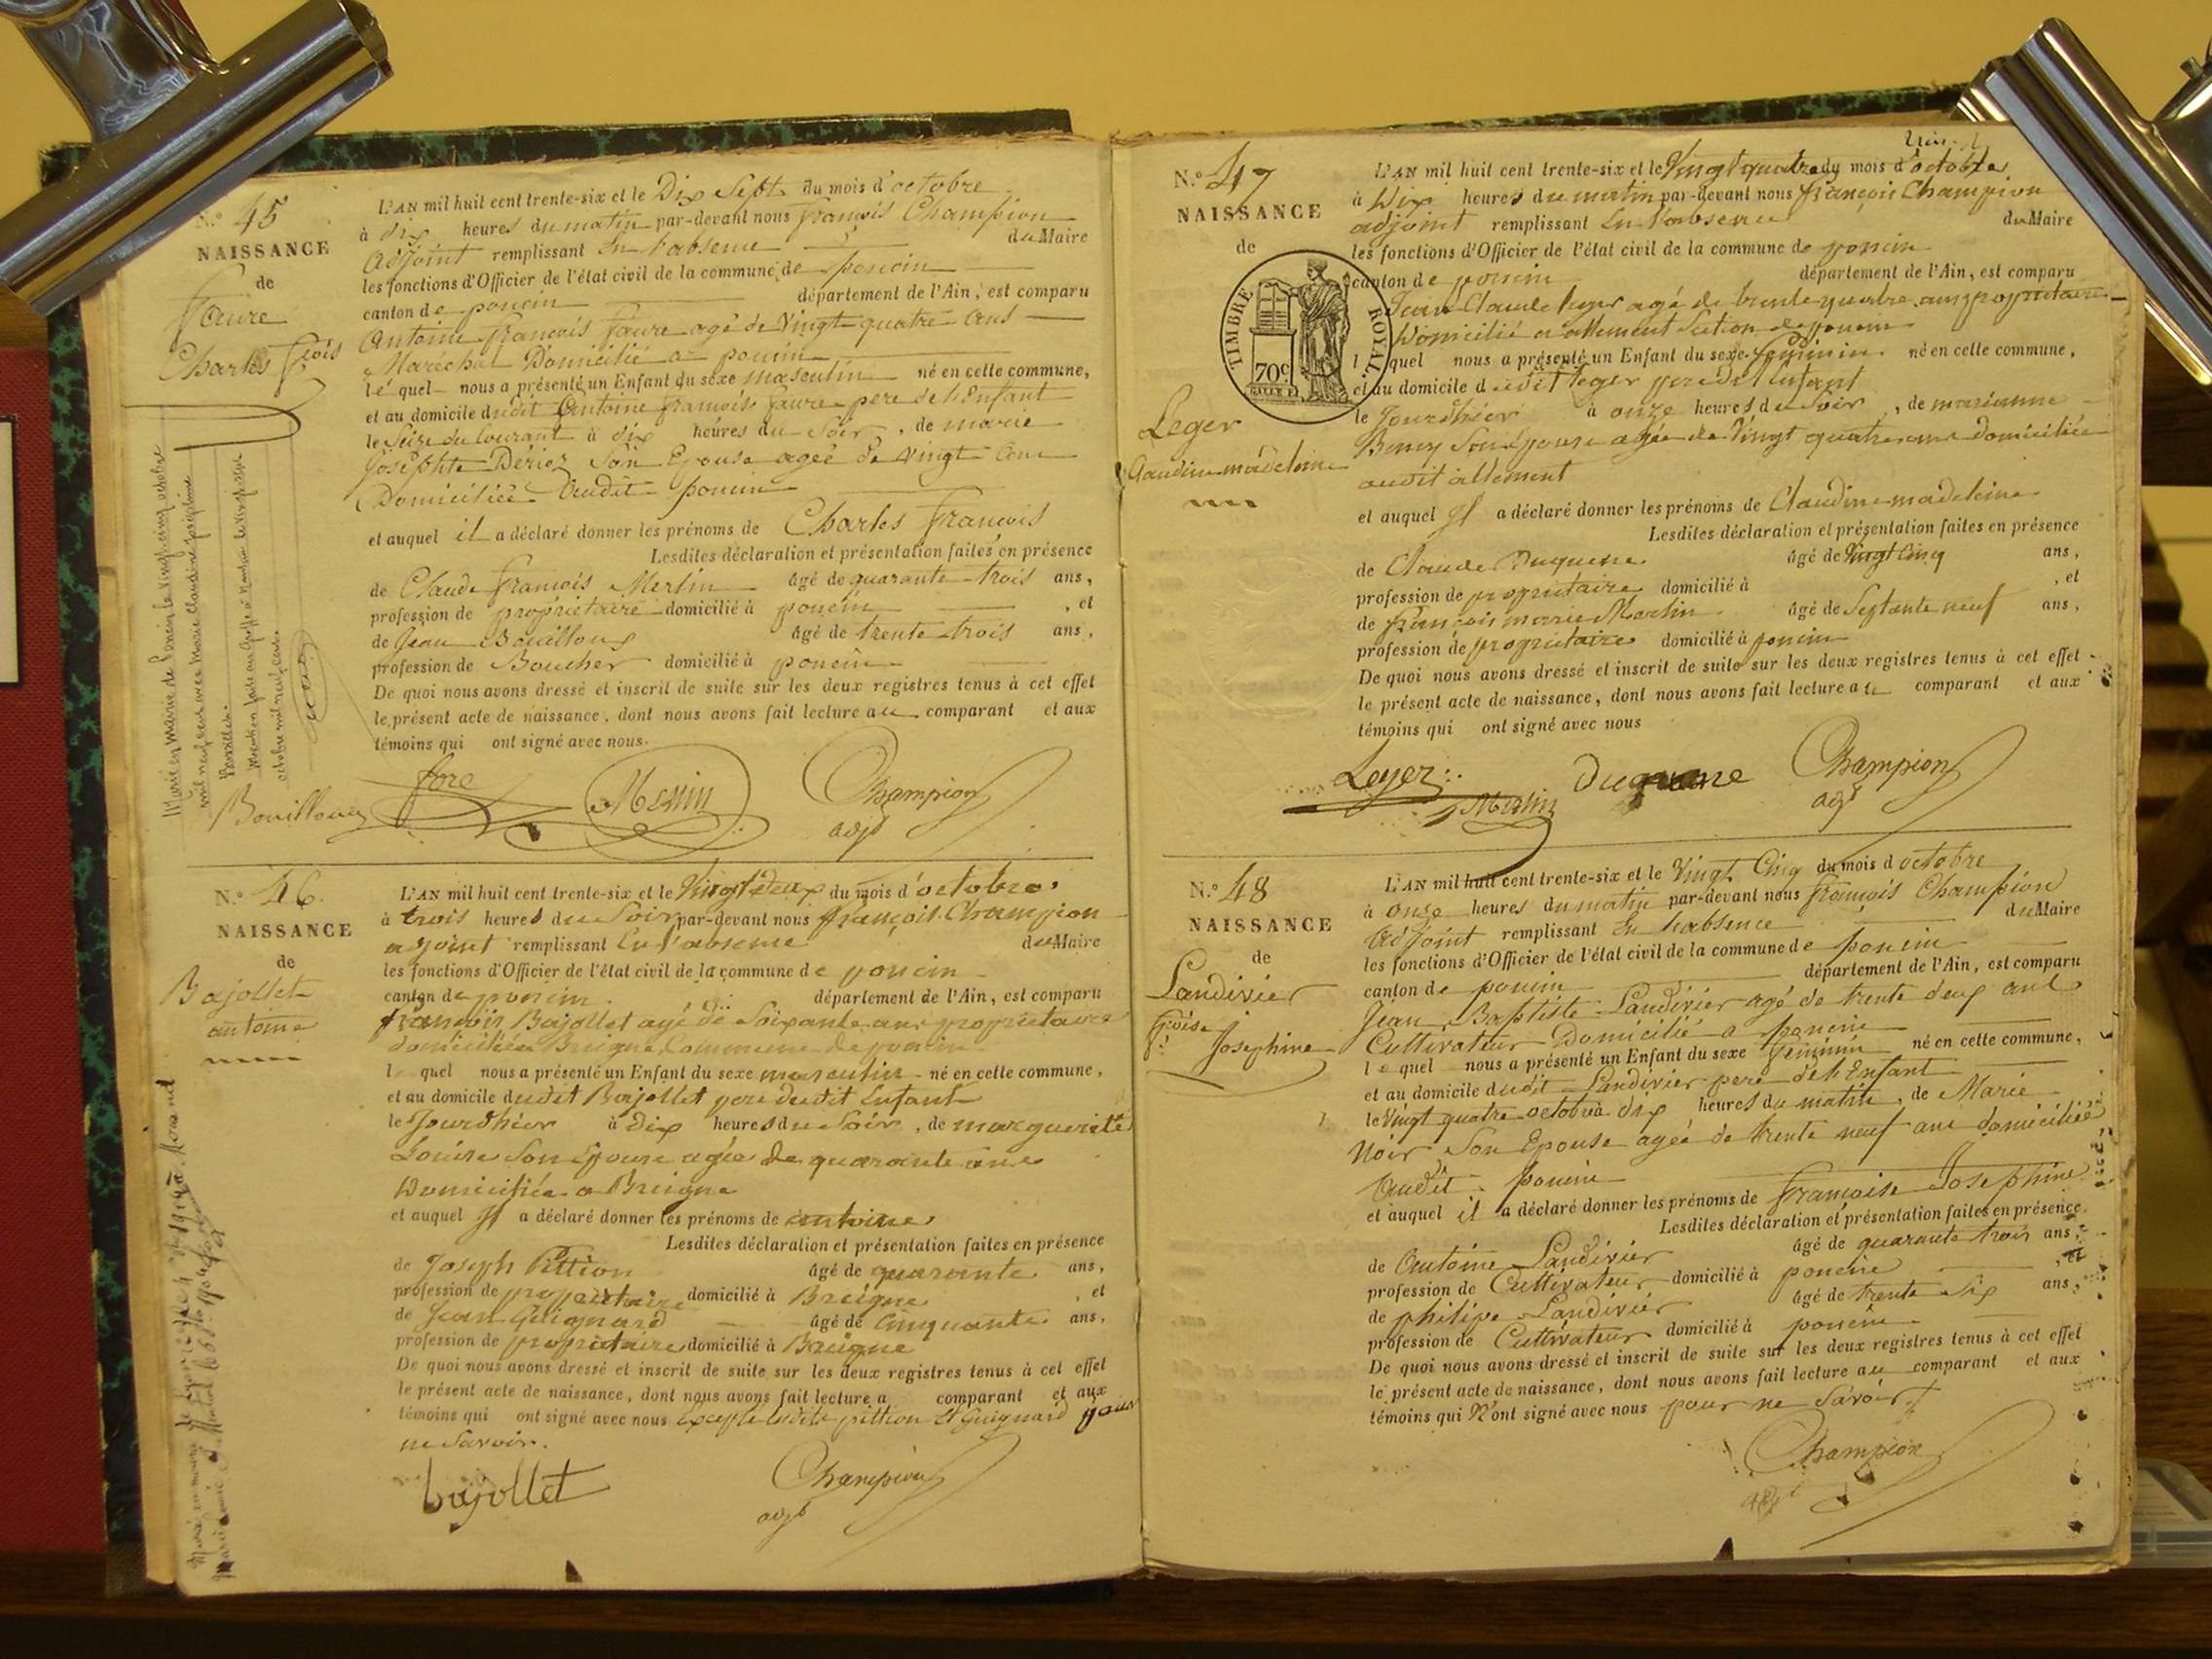 N.º 45
NAISSANCE
de
Faure
Charles fçois
L'AN mil huit cent trente-six et le Dix Sept du mois d'octobre
à dix heures du matin par-devant nous françois Champion
adjoint remplissant En l'absence du Maire
les fonctions d'Officier de l'état civil de la commune de poncin
canton de poncin département de l'Ain, est comparu
Antoine françois faure agé de Vingt quatre ans
Maréchal Domicilié a poncin
lequel nous a présenté un Enfant du sexe masculin né en cette commune,
et au domicile dudit Antoine françois faure pere de l'Enfant
le Seize du Courant à dix heures du Soir, de marie
Josephte son Epouse agée de vingt ans
Domiciliée audit poncin
et auquel il a déclaré donner les prénoms de Charles françois
Lesdites déclaration et présentation faites en présence
de Claude françois Merlin âgé de quarante trois ans,
profession de propriétaire domicilié à poncin , et
de Jean Bouilloux âgé de trente trois ans,
profession de Boucher domicilié à poncin
De quoi nous avons dressé et inscrit de suite sur les deux registres tenus à cet effet
le présent acte de naissance, dont nous avons fait lecture au comparant et aux
témoins qui ont signé avec nous.
Bouilloux fore Merlin Champion
adjt
N.º 46
NAISSANCE
de
Bajollet
antoine
L'AN mil huit cent trente-six et le Vingt deux du mois d'octobre
à trois heures du Soir par-devant nous françois Champion
adjoint remplissant En l'absence du Maire
les fonctions d'Officier de l'état civil de la commune de poncin
canton de poncin département de l'Ain, est comparu
françois Bajollet agé de Soixante ans propriétaire
domicilié a Breigne Commune de poncin
lequel nous a présenté un Enfant du sexe masculin né en cette commune,
et au domicile dudit Bajollet pere dudit Enfant
le Jour d'hier à dix heures du Soir, de marguerite
Louise Son Epouse agée de quarante ans
Domiciliée a Breigne
et auquel Il a déclaré donner les prénoms de antoine
Lesdites déclaration et présentation faites en présence
de Joseph Pittion âgé de quarante ans,
profession de propriétaire domicilié à Breigne , et
de Jean Guignard âgé de Cinquante ans,
profession de propriétaire domicilié à Breigne
De quoi nous avons dressé et inscrit de suite sur les deux registres tenus à cet effet
le présent acte de naissance, dont nous avons fait lecture a comparant et aux
témoins qui ont signé avec nous Excepté pittion et Guignard pour
ne Savoir.
bajollet Champion
adjt
N.º 47
NAISSANCE
de
TIMBRE ROYAL
70c
Leger
Claudine madeleine
L'AN mil huit cent trente-six et le Vingt quatre du mois d'octobre
à Dix heures du matin par-devant nous françois Champion
adjoint remplissant En l'absence du Maire
les fonctions d'Officier de l'état civil de la commune de poncin
canton de poncin département de l'Ain, est comparu
Jean Claude leger agé de trente quatre ans propriétaire
Domicilié a allement Section de poncin
lquel nous a présenté un Enfant du sexe feminin né en cette commune,
et au domicile dudit leger pere de l'Enfant
le Jour d'hier à onze heures du Soir, de marianne
Son Epouse agée de Vingt quatre ans domiciliée
audit allement
et auquel Il a déclaré donner les prénoms de Claudine madeleine
Lesdites déclaration et présentation faites en présence
de Claude Duquene âgé de Vingt Cinq ans,
profession de propriétaire domicilié à , et
de françois marie Merlin âgé de Septante neuf ans,
profession de propriétaire domicilié à poncin
De quoi nous avons dressé et inscrit de suite sur les deux registres tenus à cet effet
le présent acte de naissance, dont nous avons fait lecture au comparant et aux
témoins qui ont signé avec nous
Leger Merlin Duquene Champion
adjt
N.º 48
NAISSANCE
de
Landivier
fçoise
Josephine
L'AN mil huit cent trente-six et le Vingt Cinq du mois d octobre
à onze heures du matin par-devant nous françois Champion
Adjoint remplissant En l'absence du Maire
les fonctions d'Officier de l'état civil de la commune de poncin
canton de poncin département de l'Ain, est comparu
Jean Baptiste Landivier agé de trente deux ans
Cultivateur Domicilié a poncin
lequel nous a présenté un Enfant du sexe féminin né en cette commune,
et au domicile dudit Landivier pere de l'Enfant
le Vingt quatre octob à dix heures du matin, de Marie
Noir Son Epouse agée de trente neuf ans domiciliée
Audit poncin
et auquel il a déclaré donner les prénoms de françoise Josephine
Lesdites déclaration et présentation faites en présence
de Antoine Landivier âgé de quarante trois ans,
profession de Cultivateur domicilié à poncin , et
de philipe Landivier âgé de trente Six ans,
profession de Cultivateur domicilié à poncin
De quoi nous avons dressé et inscrit de suite sur les deux registres tenus à cet effet
le présent acte de naissance, dont nous avons fait lecture au comparant et aux
témoins qui N'ont signé avec nous pour ne Savoir
Champion
adjt